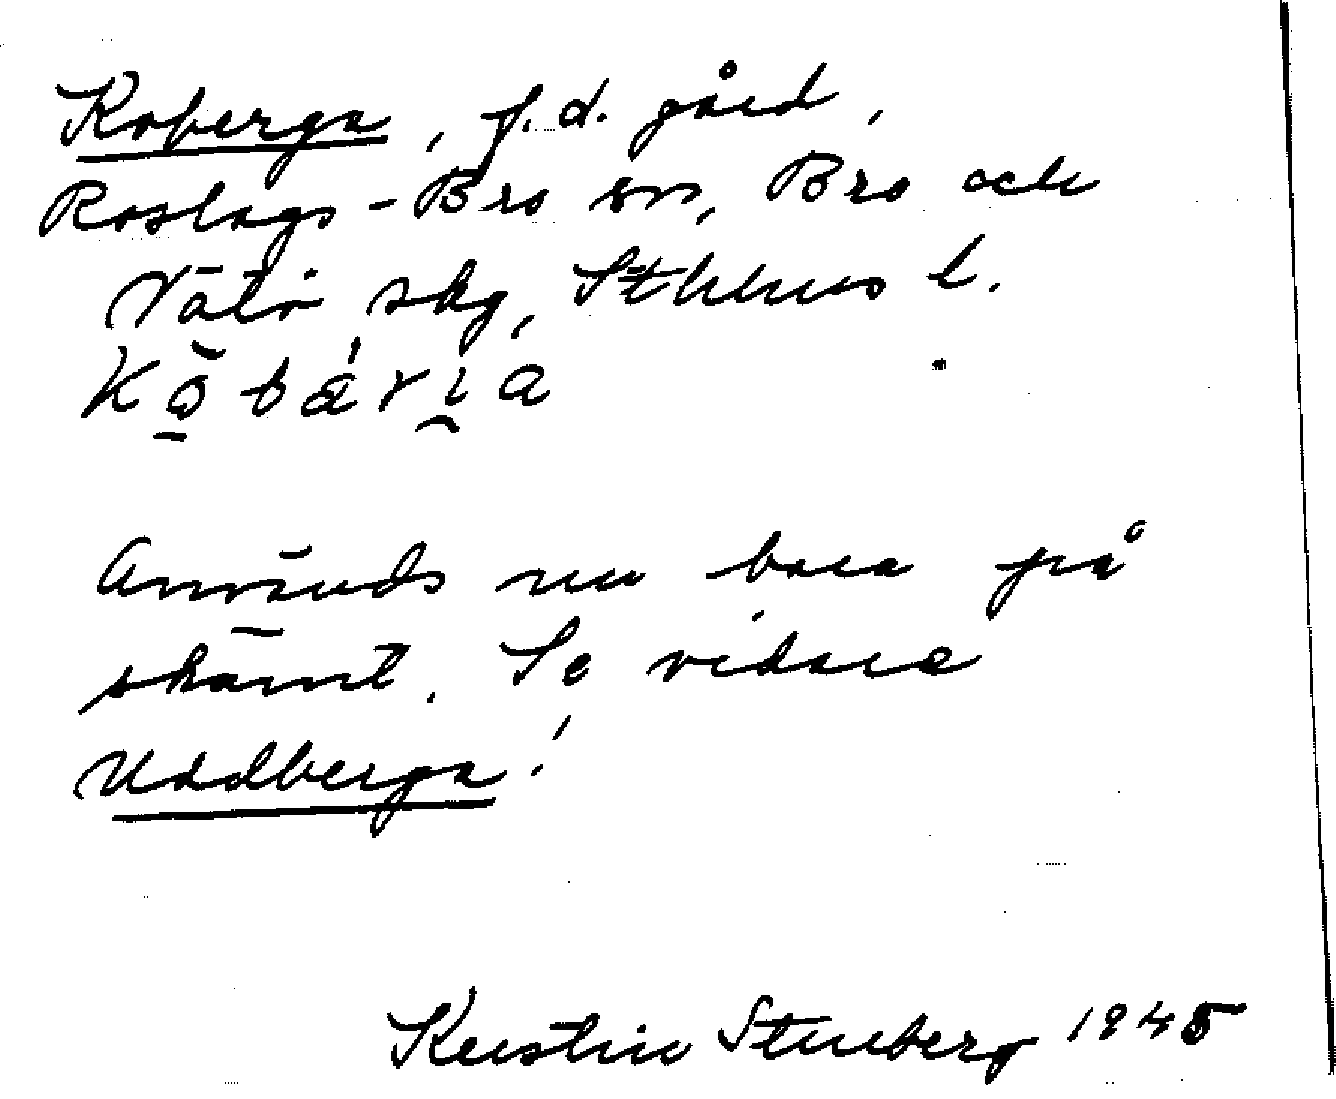 Koberga, f.d. gård,
Roslags-Bro sn, Bro och
Vätö skg, Sthlms l.
Kǒ̱bá̱ri̯a
Används nu bara på
skämt. Se vidare
Uddberga!
Kerstin Stenberg 1945